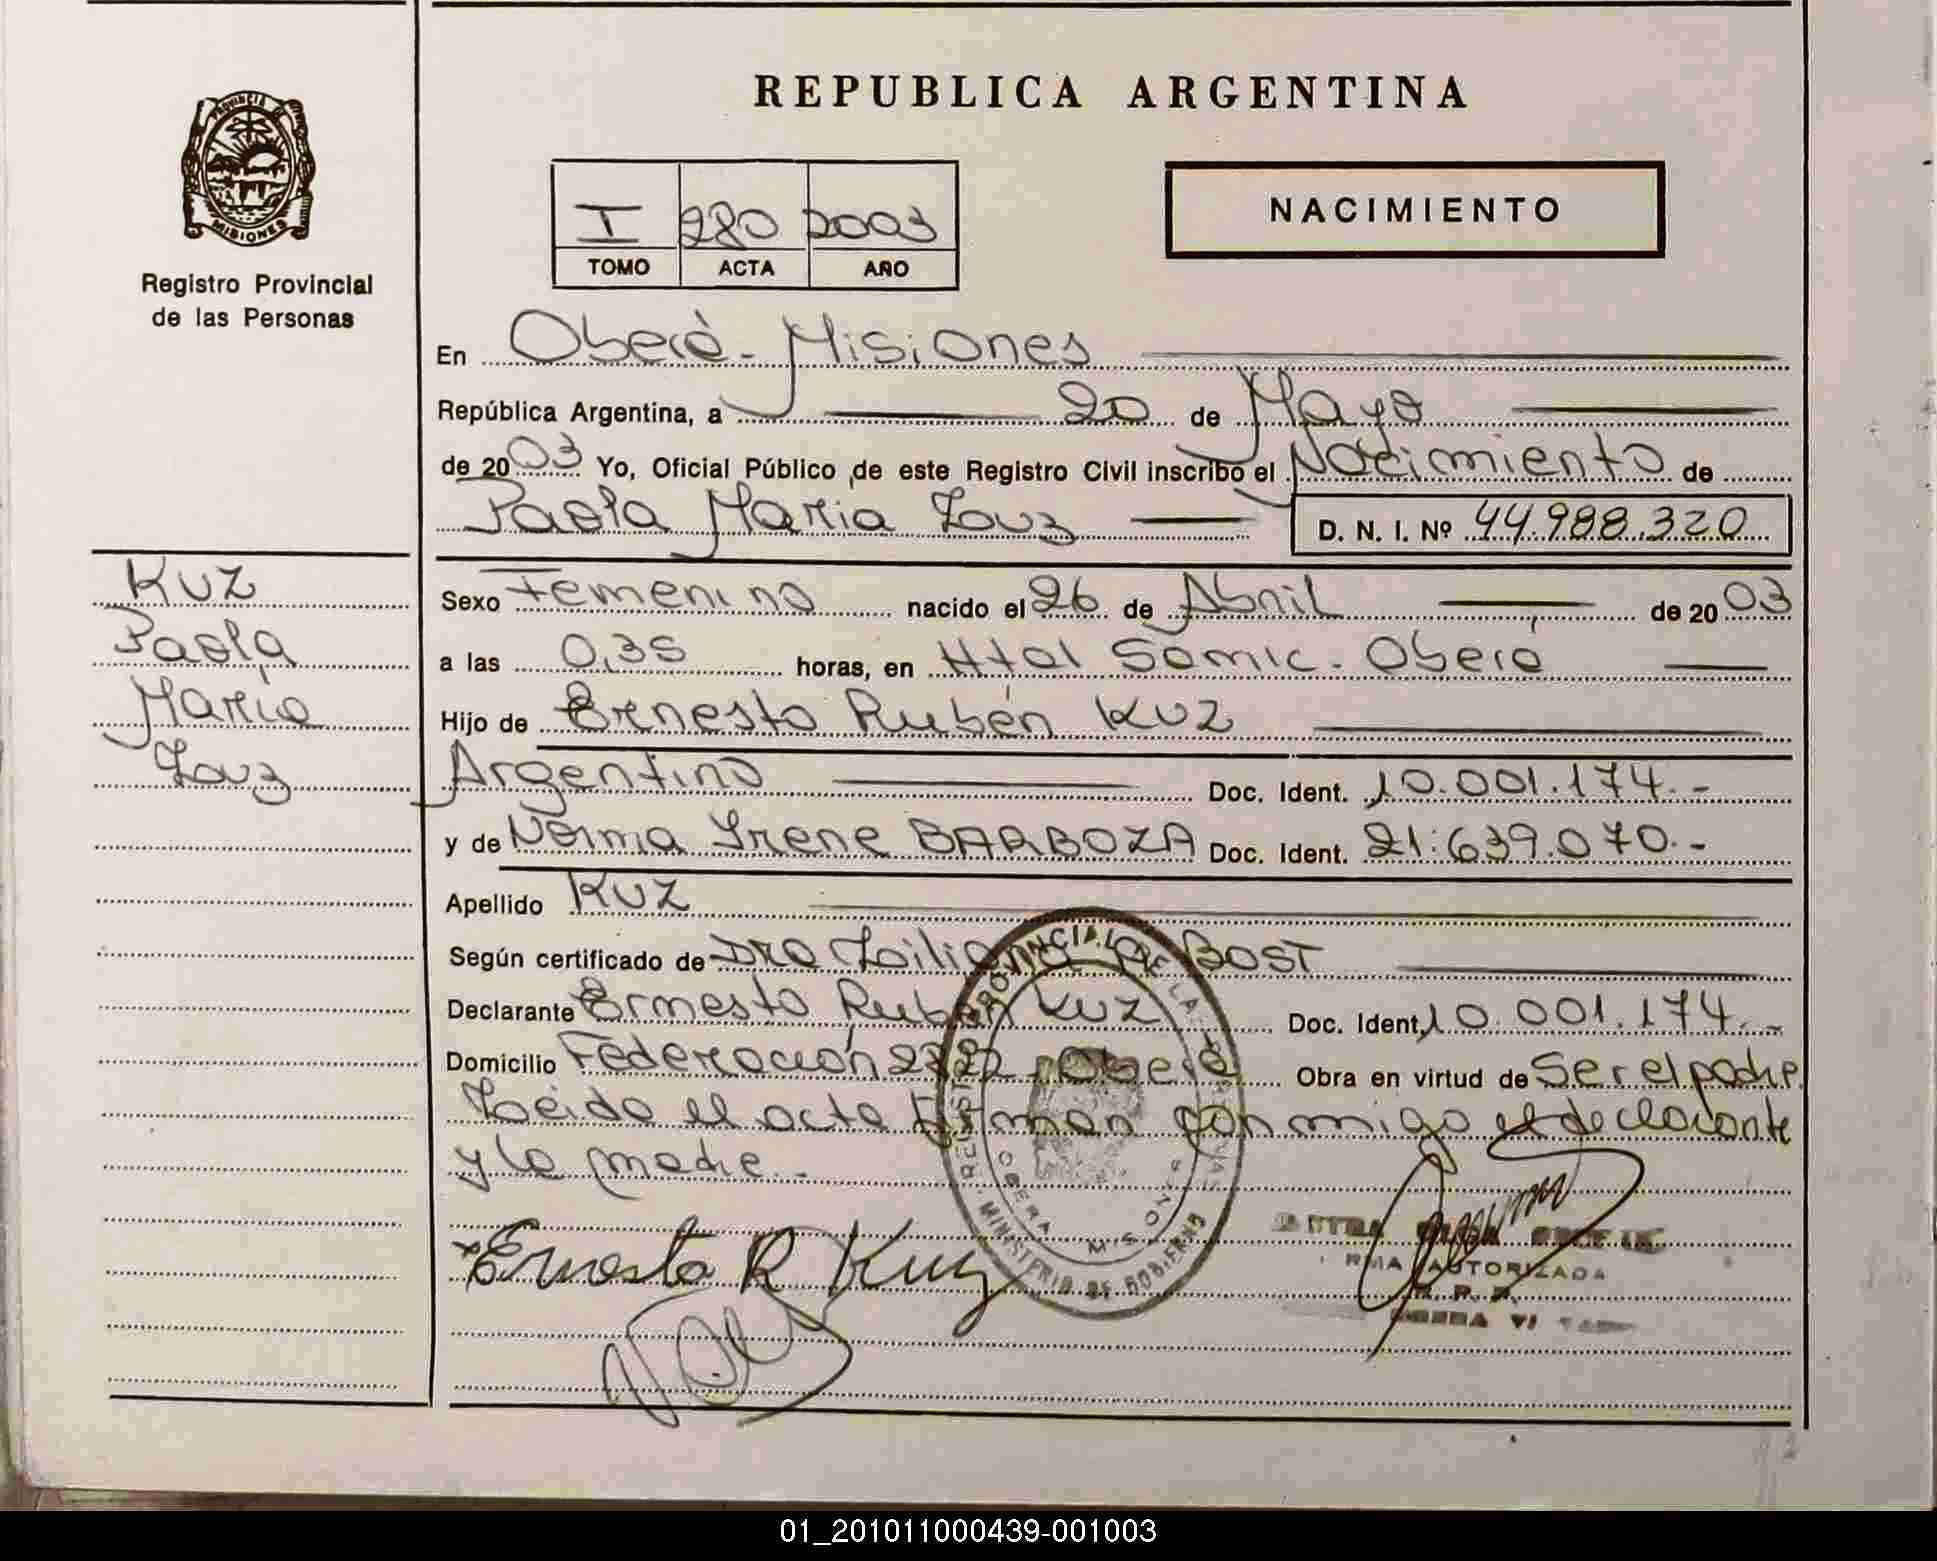 REPUBLICA ARGENTINA
PROVINCIA DE
MISIONES
Registro Provincial
de las Personas
I 280 2003
TOMO ACTA AÑO
NACIMIENTO
En Oberá - Misiones
República Argentina, a 20 de Mayo
de 2003 Yo, Oficial Público de este Registro Civil inscribo el Nacimiento de
Paola Maria Luz D. N. I. Nº 44.988.320
KUZ
Paola
Maria
Luz
Sexo Femenino nacido el 26 de Abril de 2003
a las 0,35 horas, en Htal Samic. Oberá
Hijo de Ernesto Rubén KUZ
Argentino Doc. Ident. 10.001.174.-
y de Norma Irene BARBOZA Doc. Ident. 21.639.070.-
Apellido KUZ
Según certificado de Dra Liliana BOST
Declarante Ernesto Rubén KUZ Doc. Ident. 10.001.174.-
Domicilio Federación Oberá Obra en virtud de Ser el padre
Leida el acta firman conmigo el declarante
y la madre.-
REGISTRO PROVINCIAL DE LAS PERSONAS
OBERA MISIONES
MINISTERIO DE GOBIERNO
Ernesto R Kuz
AUTORIZADA
01_201011000439-001003